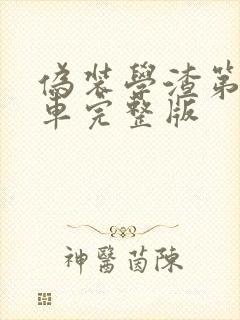 偽裝學渣第
車完整版
神醫茵陳